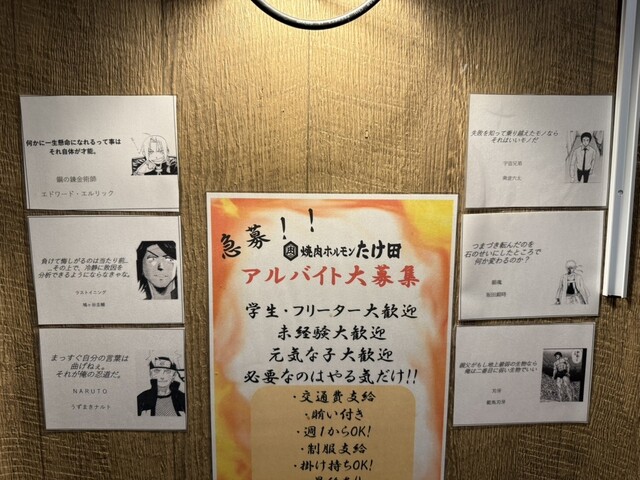 何かに一生懸命になれるって事は
それ自体が才能。
鋼の錬金術師
エドワード・エルリック
負けて悔しがるのは当たり前。
…その上で、冷静に敗因を
分析できるようにならなきゃな。
ラストイニング
鳩ヶ谷圭輔
まっすぐ自分の言葉は
曲げねぇ。
それが俺の忍道だ。
NARUTO
うずまきナルト
急募!!
肉 焼肉ホルモンたけ田
アルバイト大募集
学生・フリーター大歓迎
未経験大歓迎
元気な子大歓迎
必要なのはやる気だけ!!
・交通費支給
・賄い付き
・週1からOK!
・制服支給
・掛け持ちOK!
失敗を知って乗り越えたモノなら
それはいいモノだ
宇宙兄弟
南波六太
つまづき転んだのを
石のせいにしたところで
何か変わるのか?
銀魂
坂田銀時
親父がもし地上最強の生物なら
俺は二番目に弱い生物でいい